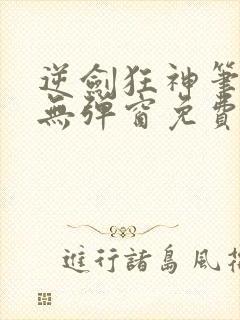 逆劍狂神筆
無彈窗免費
進行諸島風